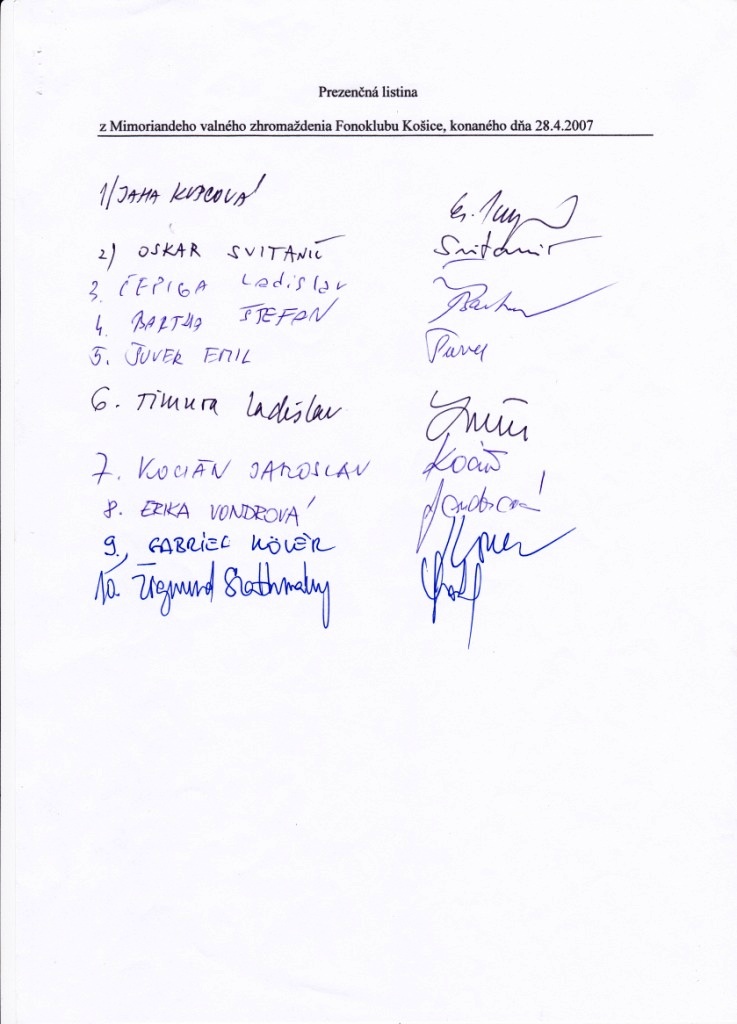 Prezenčná listina
z Mimoriandeho valného zhromaždenia Fonoklubu Košice, konaného dňa 28.4.2007
1/ JANA KUPCOVÁ
2) OSKAR SVITANIČ Svitanič
3. ČEPIGA Ladislav
4. BARTHA ŠTEFAN
5. ŠUVER EMIL
6. Timura Ladislav
7. KOCIÁN JAROSLAV
8. ERIKA VONDROVÁ
9., GABRIEL KÖVÉR
10. Žigmund Szathmáry